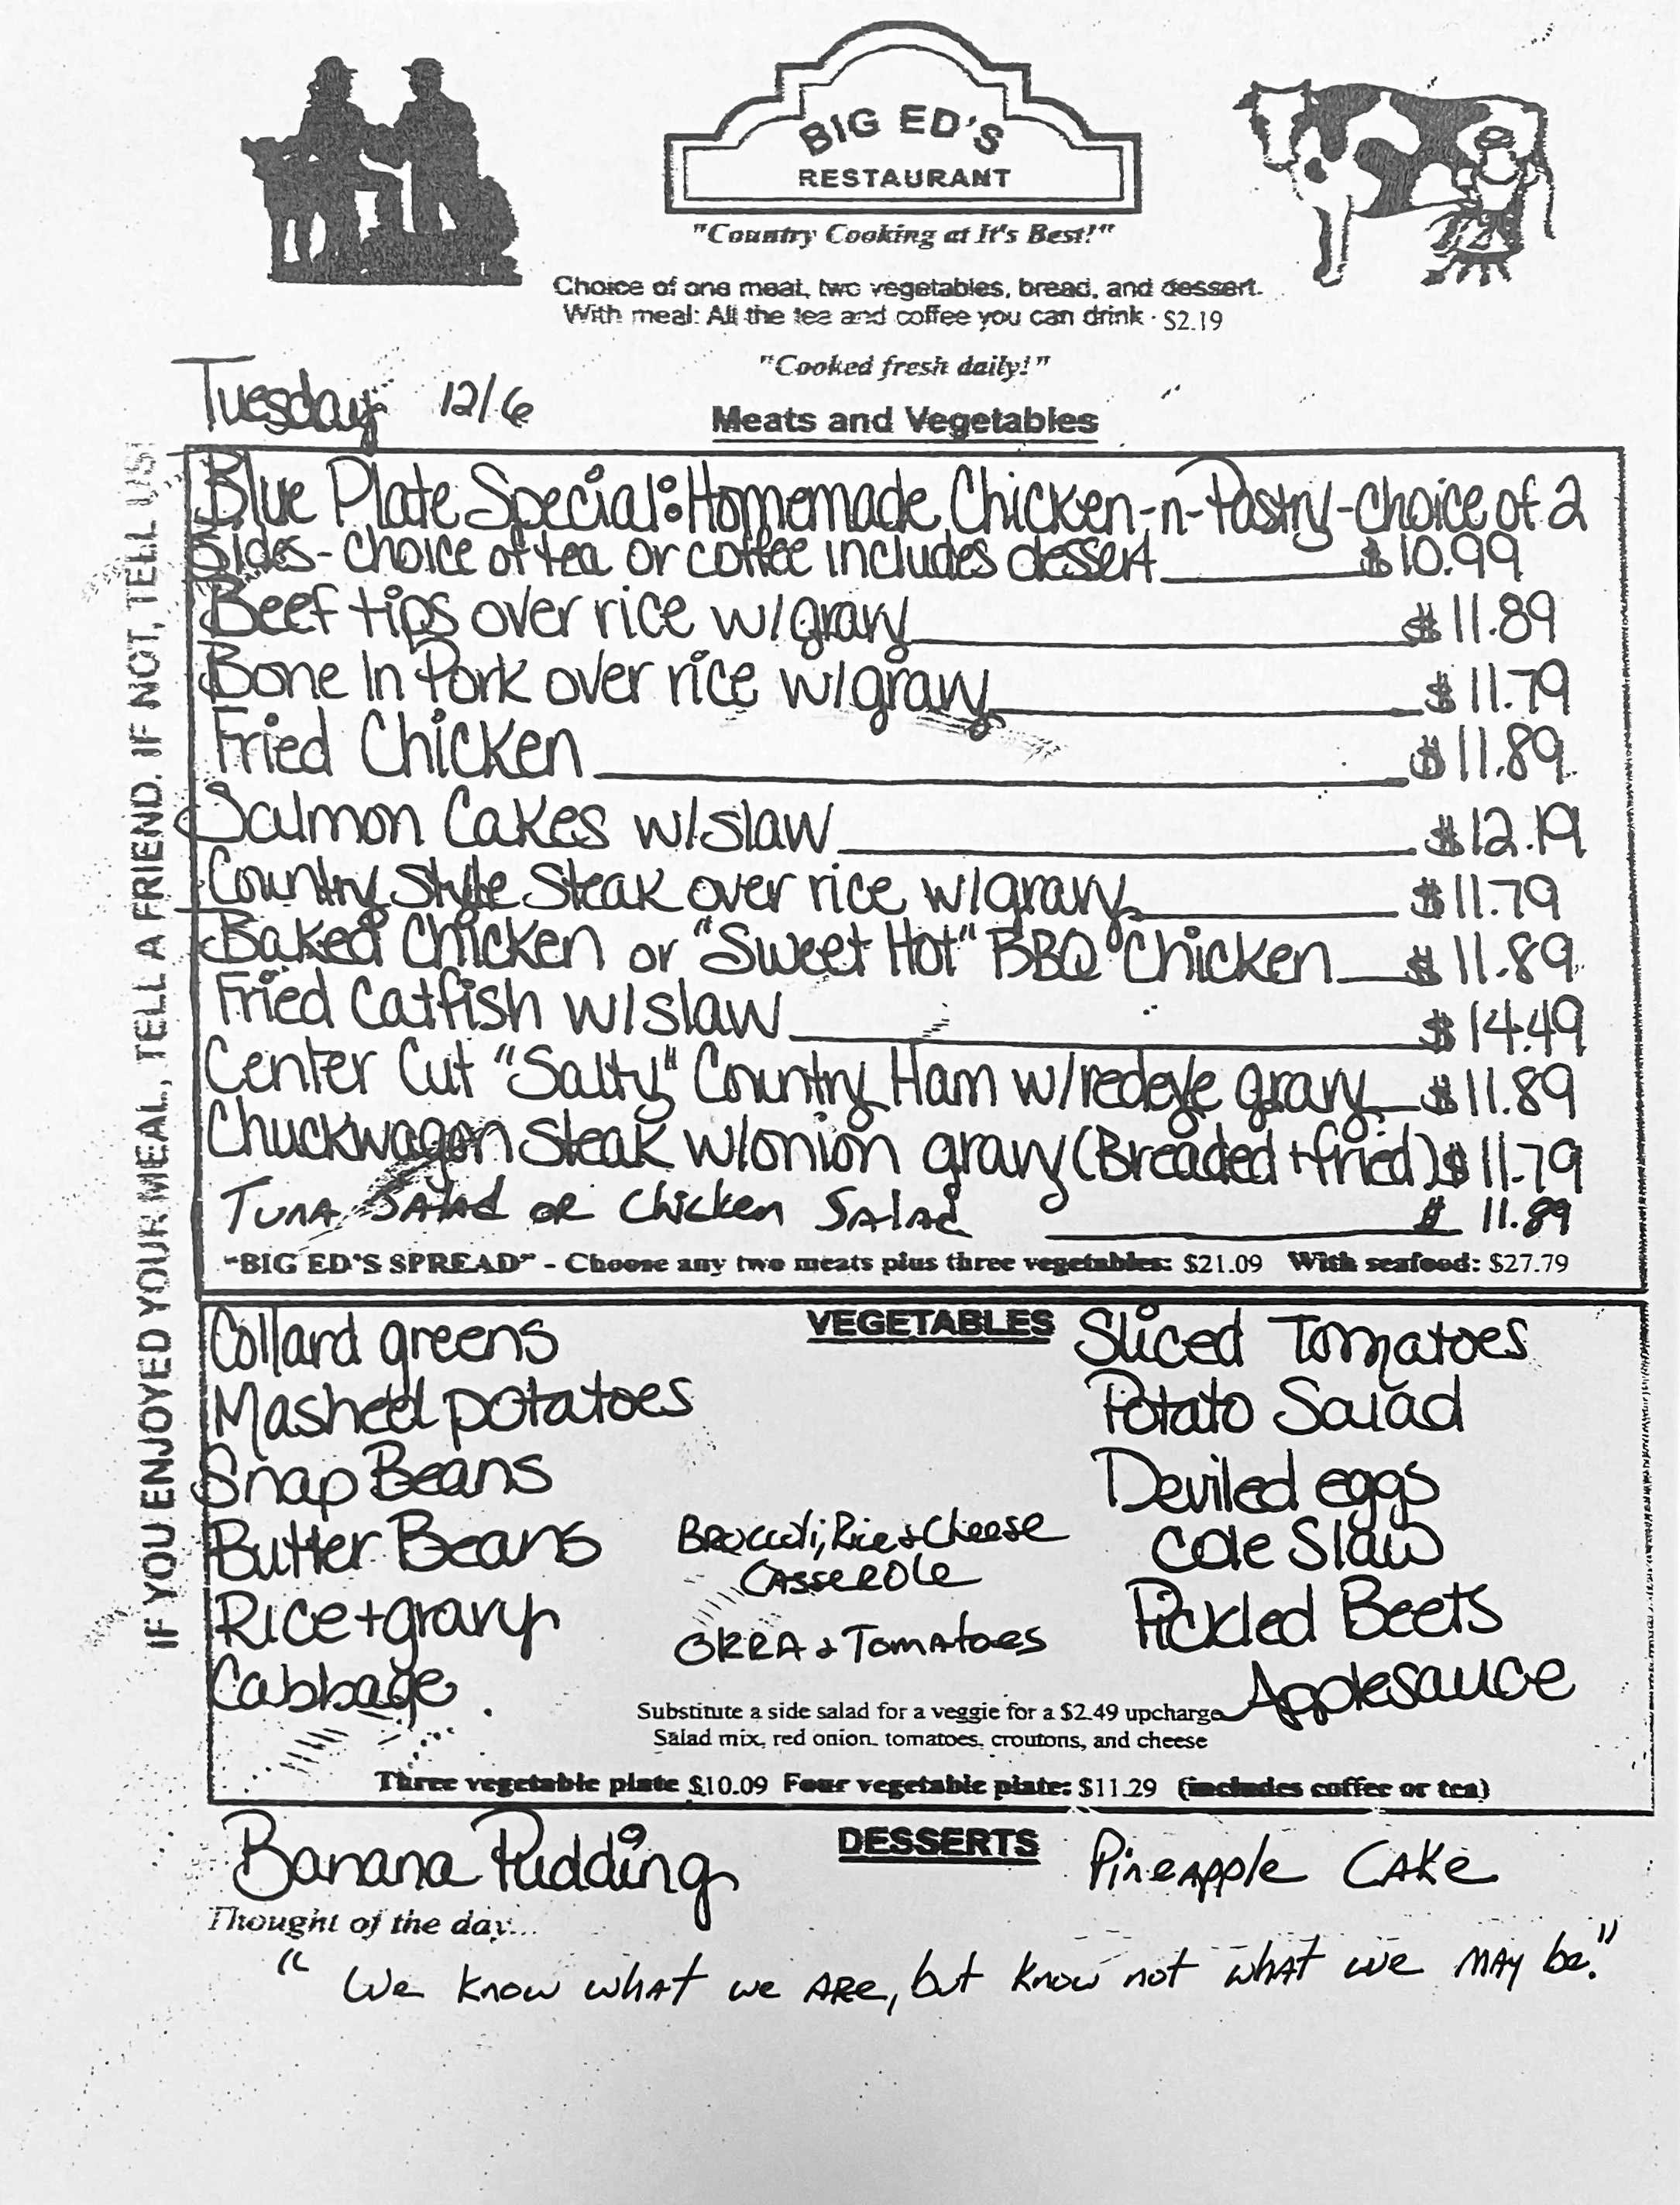 BIG ED'S
RESTAURANT
"Country Cooking at It's Best!"
Choice of one meat, two vegetables, bread, and dessert.
With meal: All the tea and coffee you can drink - $2.19
"Cooked fresh daily!"
Tuesday 12/6
Meats and Vegetables
Blue Plate Special: Homemade Chicken-n-Pastry - choice of 2
Sides - choice of tea or coffee includes dessert $10.99
Beef tips over rice w/gravy $11.89
Bone In Pork over rice w/gravy $11.79
Fried Chicken $11.89
Salmon Cakes w/slaw $12.19
Country Style Steak over rice w/gravy $11.79
Baked Chicken or "Sweet Hot" BBQ Chicken $11.89
Fried Catfish w/slaw $14.49
Center Cut "Salty" Country Ham w/redeye gravy $11.89
Chuckwagon Steak w/onion gravy (Breaded + fried) $11.79
Tuna Salad or Chicken Salad $11.89
"BIG ED'S SPREAD" - Choose any two meats plus three vegetables: $21.09 With seafood: $27.79
VEGETABLES
Collard greens
Mashed potatoes
Snap Beans
Butter Beans
Rice + gravy
Cabbage
Broccoli, Rice + Cheese
Casserole
OKRA + Tomatoes
Sliced Tomatoes
Potato Salad
Deviled eggs
Cole Slaw
Pickled Beets
Applesauce
Substitute a side salad for a veggie for a $2.49 upcharge
Salad mix, red onion, tomatoes, croutons, and cheese
Three vegetable plate $10.09 Four vegetable plate: $11.29 (includes coffee or tea)
DESSERTS
Banana Pudding
Pineapple Cake
Thought of the day...
"We know what we are, but know not what we may be."
IF YOU ENJOYED YOUR MEAL, TELL A FRIEND. IF NOT, TELL US!